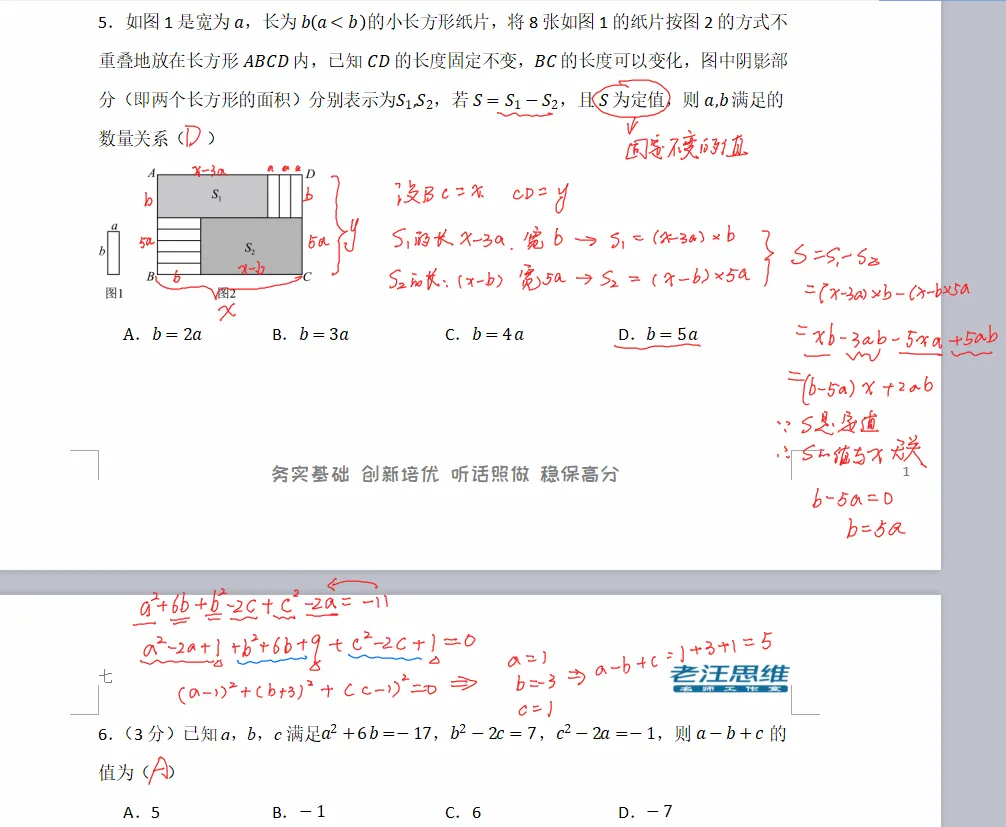 5．如图1是宽为a，长为b(a<b)的小长方形纸片，将8张如图1的纸片按图2的方式不
重叠地放在长方形ABCD内，已知CD的长度固定不变，BC的长度可以变化，图中阴影部
分（即两个长方形的面积）分别表示为S₁,S₂，若S=S₁−S₂，且S为定值，则a,b满足的
数量关系（D）
固定不变的值
A x-3a a a a D
b S₁ b
a
b
5a S₂ 5a y
x-b
B b C
图1 图2
x
设BC=x CD=y
S₁的长 x-3a. 宽 b → S₁=(x-3a)×b
S₂的长：(x-b) 宽5a → S₂=(x-b)×5a
S=S₁-S₂
=(x-3a)×b-(x-b×5a
=xb-3ab-5xa+5ab
=(b-5a)x+2ab
∵ S是定值
∴ S的值与x无关
b-5a=0
b=5a
A．b=2a B．b=3a C．b=4a D．b=5a
务实基础 创新培优 听话照做 稳保高分
1
a²+6b+b²-2c+c²-2a=-11
a²-2a+1+b²+6b+9+c²-2c+1=0
(a-1)²+(b+3)²+(c-1)²=0 ⇒
a=1
b=-3
c=1
⇒ a-b+c=1+3+1=5
七
老汪思维
名师工作室
6.（3分）已知a，b，c满足a²+6b=−17，b²−2c=7，c²−2a=−1，则a−b+c的
值为（A）
A．5 B．−1 C．6 D．−7